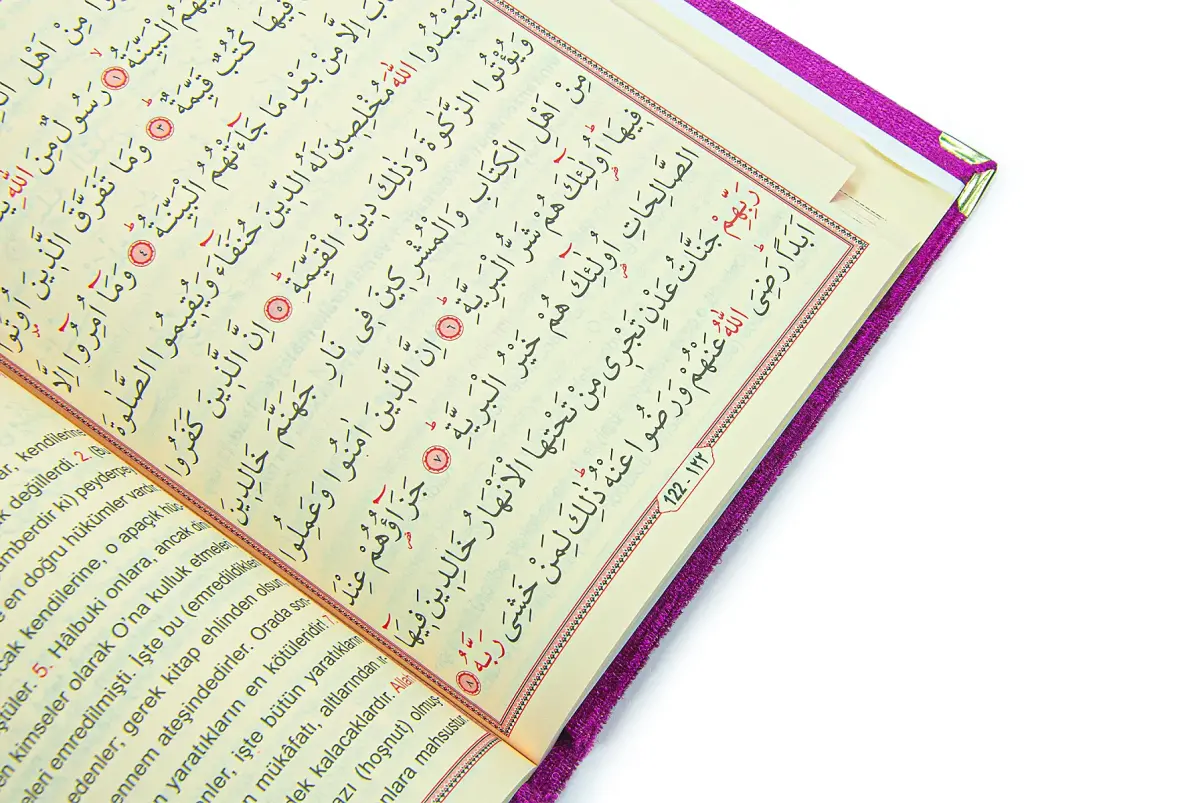 مِنْ اَهْلِ
الْبَيِّنَةُ ﴿١﴾ رَسُولٌ مِنَ اللّٰهِ
فِيهَا كُتُبٌ قَيِّمَةٌ ﴿٣﴾ وَمَا تَفَرَّقَ الَّذِينَ اُوتُوا
اِلَّا مِنْ بَعْدِ مَا جَٓاءَتْهُمُ الْبَيِّنَةُ ﴿٤﴾ وَمَٓا اُمِرُٓوا اِلَّا
لِيَعْبُدُوا اللّٰهَ مُخْلِصِينَ لَهُ الدِّينَ حُنَفَٓاءَ وَيُقِيمُوا الصَّلٰوةَ
وَيُؤْتُوا الزَّكٰوةَ وَذٰلِكَ دِينُ الْقَيِّمَةِ ﴿٥﴾ اِنَّ الَّذِينَ كَفَرُوا
مِنْ اَهْلِ الْكِتَابِ وَالْمُشْرِكِينَ فِى نَارِ جَهَنَّمَ خَالِدِينَ
فِيهَا اُولٰٓئِكَ هُمْ شَرُّ الْبَرِيَّةِ ﴿٦﴾ اِنَّ الَّذِينَ اٰمَنُوا وَعَمِلُوا
الصَّالِحَاتِ اُولٰٓئِكَ هُمْ خَيْرُ الْبَرِيَّةِ ﴿٧﴾ جَزَٓاؤُهُمْ عِنْدَ
رَبِّهِمْ جَنَّاتُ عَدْنٍ تَجْرِى مِنْ تَحْتِهَا الْاَنْهَارُ خَالِدِينَ فِيهَٓا
اَبَدًا رَضِىَ اللّٰهُ عَنْهُمْ وَرَضُوا عَنْهُ ذٰلِكَ لِمَنْ خَشِىَ رَبَّهُ ﴿٨﴾
122 - ١٢٢
kendilerine
değillerdi. 2. (Bu
ki) peyderpey
en doğru hükümler vardır
kendilerine, o apaçık
5. Hâlbuki onlara, ancak din
kimseler olarak O'na kulluk etmeleri,
emredilmişti. İşte bu (emredildikleri
gerek kitap ehlinden olsun
ateşindedirler. Orada
işte bütün yaratıkların
yaratıkların en kötüleridir!
mükâfatı, altlarından
kalacaklardır. Allah
(hoşnut) olmuş
mahsustur.